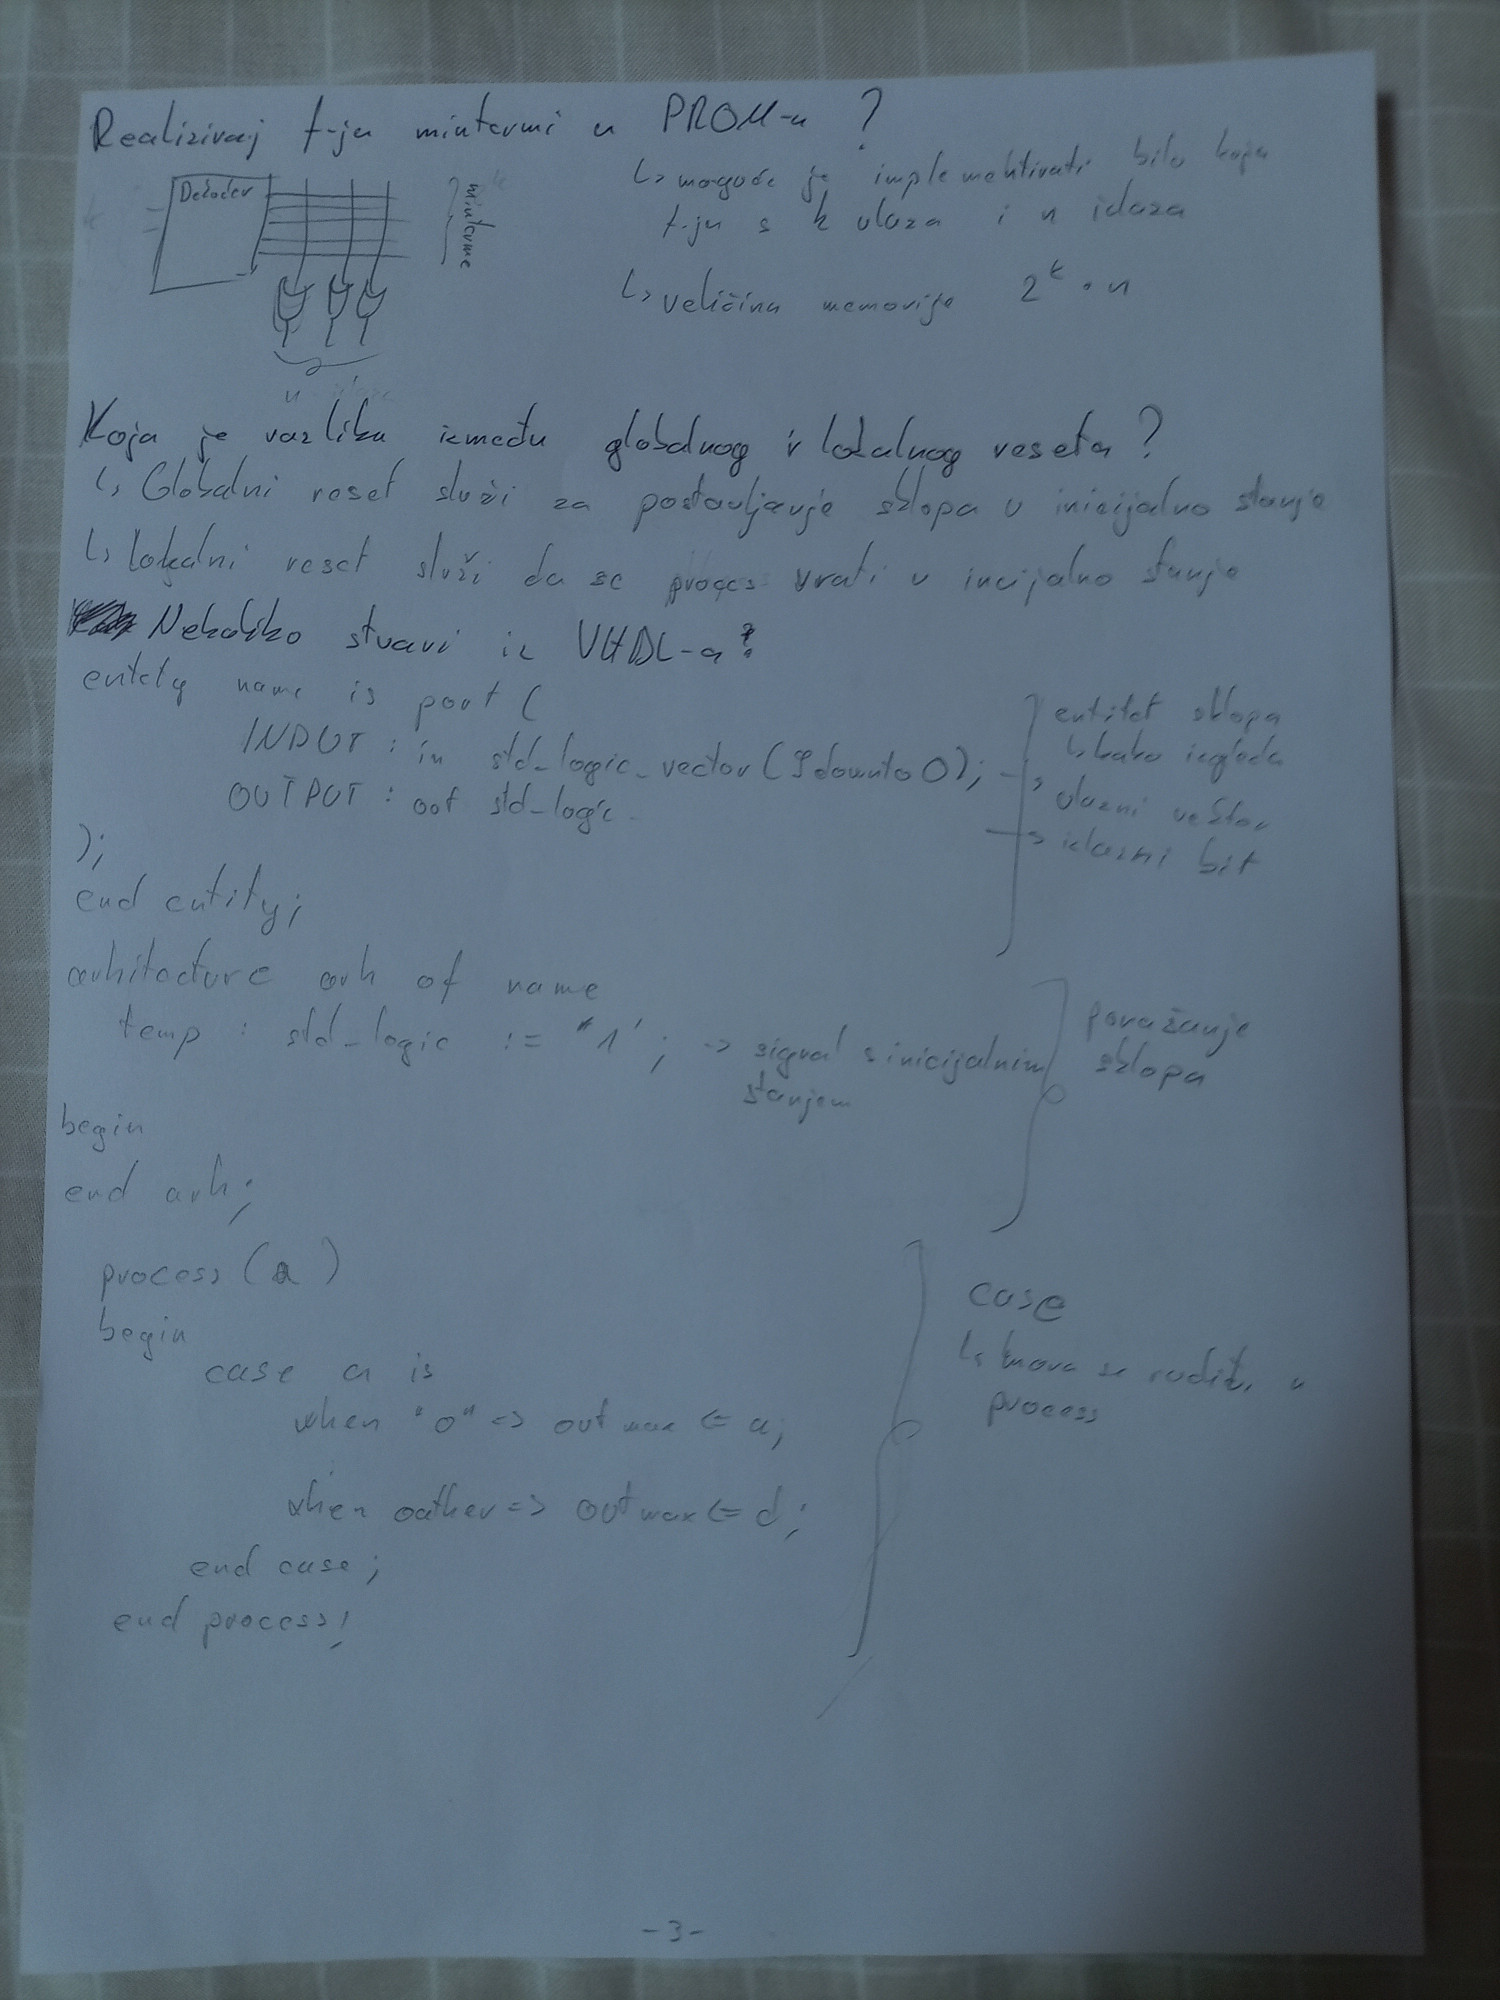 Realiziraj f-ju mintermi u PROM-u ?
Dekoder
minterme
k
n
↳ moguće je implementirati bilo koju
f-ju s k ulaza i n izlaza
↳ veličina memorije 2^k · n
Koja je razlika između globalnog i lokalnog reseta ?
↳ Globalni reset služi za postavljanje sklopa u inicijalno stanje
↳ lokalni reset služi da se proces vrati u incijalno stanje
Nekoliko stvari iz VHDL-a?
entity name is port (
INPUT : in std_logic_vector (9 downto 0);
OUTPUT : out std_logic
);
end entity;
entitet sklopa
↳ kako izgleda
→ ulazni vektor
→ izlazni bit
arhitecture arh of name
temp : std_logic := '1' ; → signal s inicijalnim
stanjem
begin
end arh;
ponašanje
sklopa
process (a)
begin
case a is
when "0" => out max <= a;
when oather => out max <= d;
end case;
end process;
case
↳ mora se raditi u
process
-3-